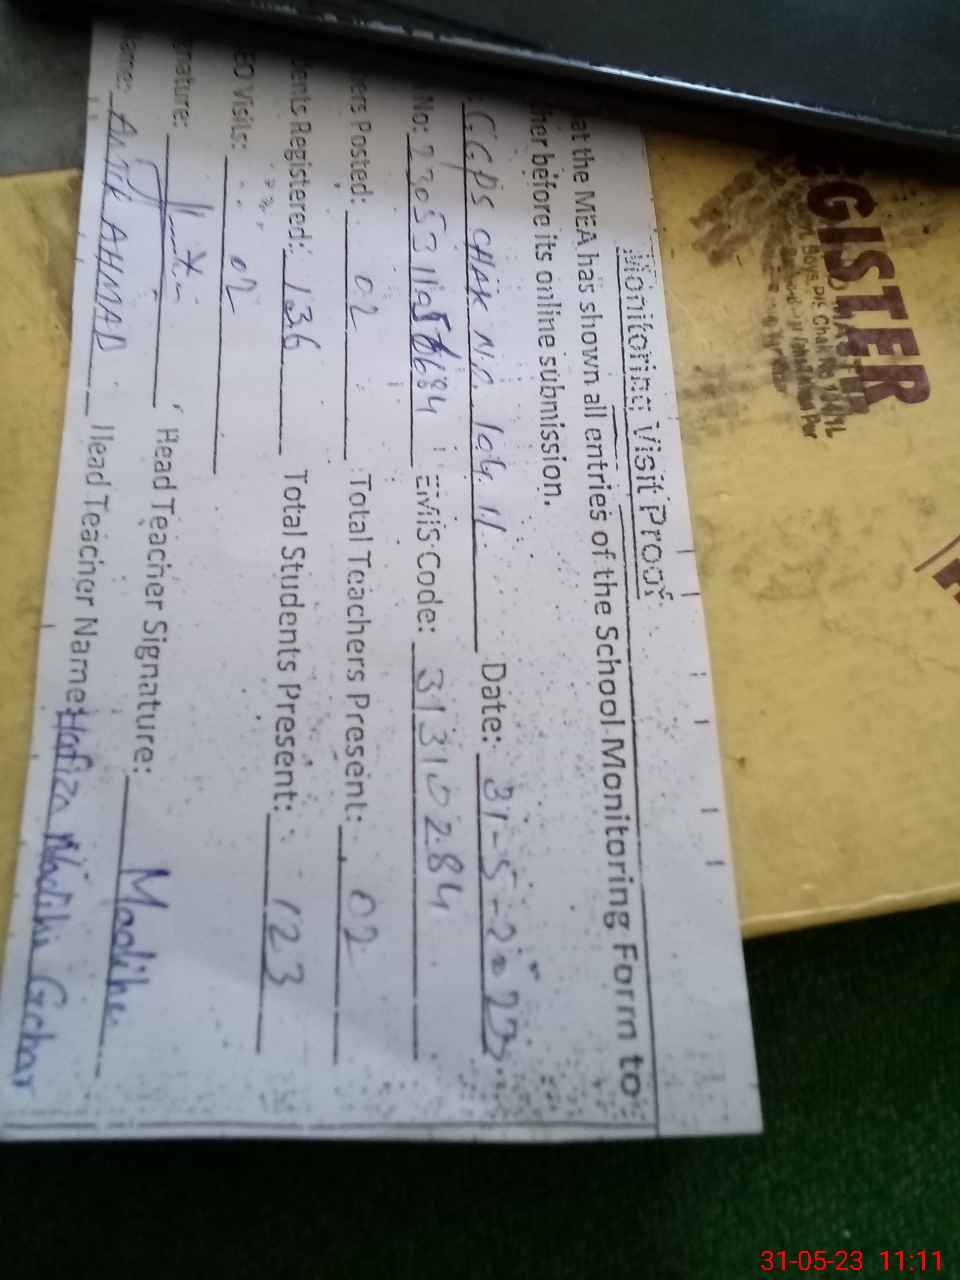 Monitoring Visit Proof
at the MEA has shown all entries of the School Monitoring Form to
her before its online submission.
GGPS CHAK NO. 104.1L Date: 31-5-2023
No: EMIS Code: 31310284
ers Posted: 02 Total Teachers Present: 02
ents Registered: 136 Total Students Present: 123
EO Visits: 02
nature: Head Teacher Signature: Madiha
ame: AHMAD Head Teacher Name: Hafiza
GISTER
31-05-23 11:11